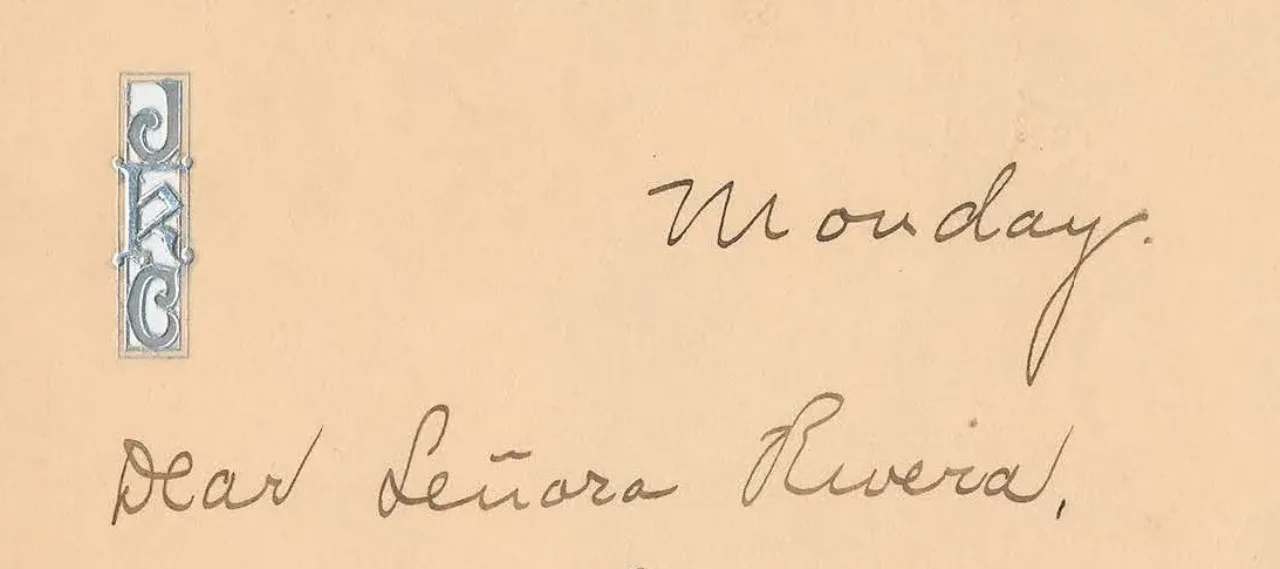 JKC
Monday.
Dear Señora Rivera,